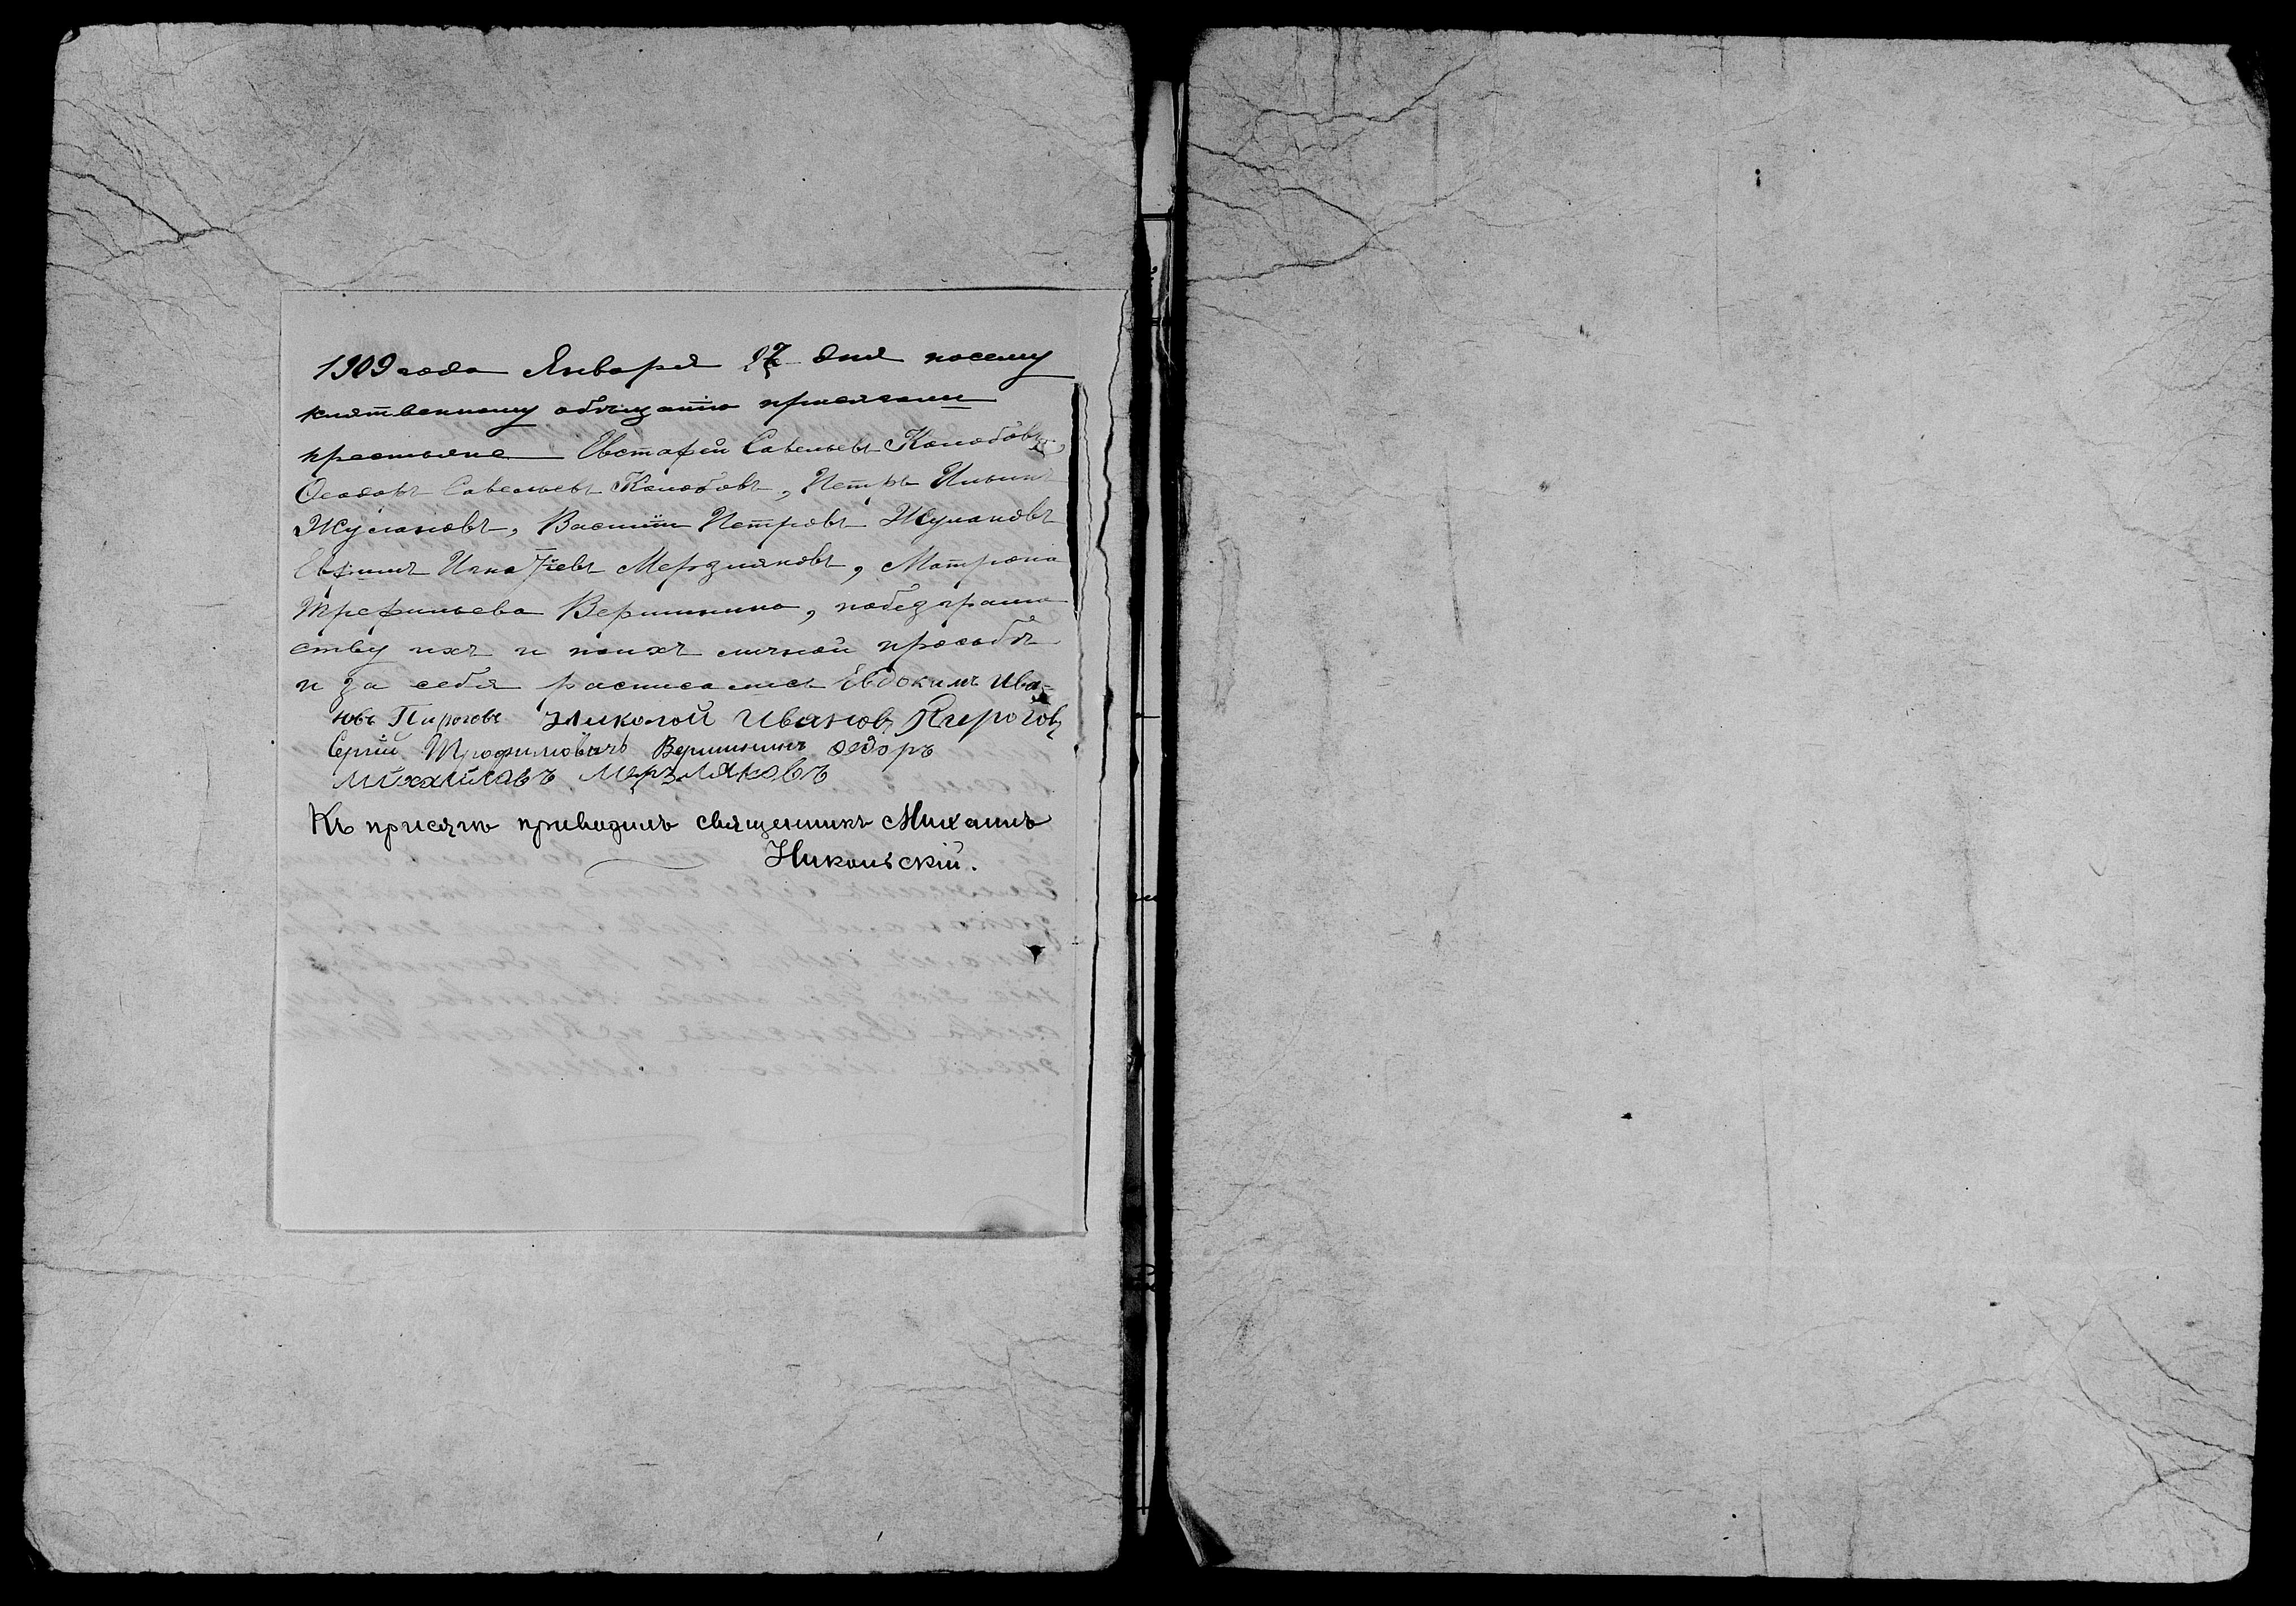 1909 года Января 27 дня посему
клятвенному обѣщанію присягали
крестьяне Евстафій Савельевъ Колобовъ,
Ѳеодоръ Савельевъ Колобовъ, Петръ Ильинъ
Жулановъ, Василій Петровъ Жулановъ
Евфимъ Игнатіевъ Мерзляковъ, Матрона
Трефильева Вершинина, побезграмо
ству ихъ и поихъ личной просьбѣ
и за себя расписались Евдокимъ Ива-
новъ Пироговъ Николай Ивановъ Пироговъ
Сергій Трофимовичъ Вершининъ Ѳедоръ
Михайлавъ Мерзляковъ
Къ присягѣ приводилъ священникъ Михаилъ
Никольскій.